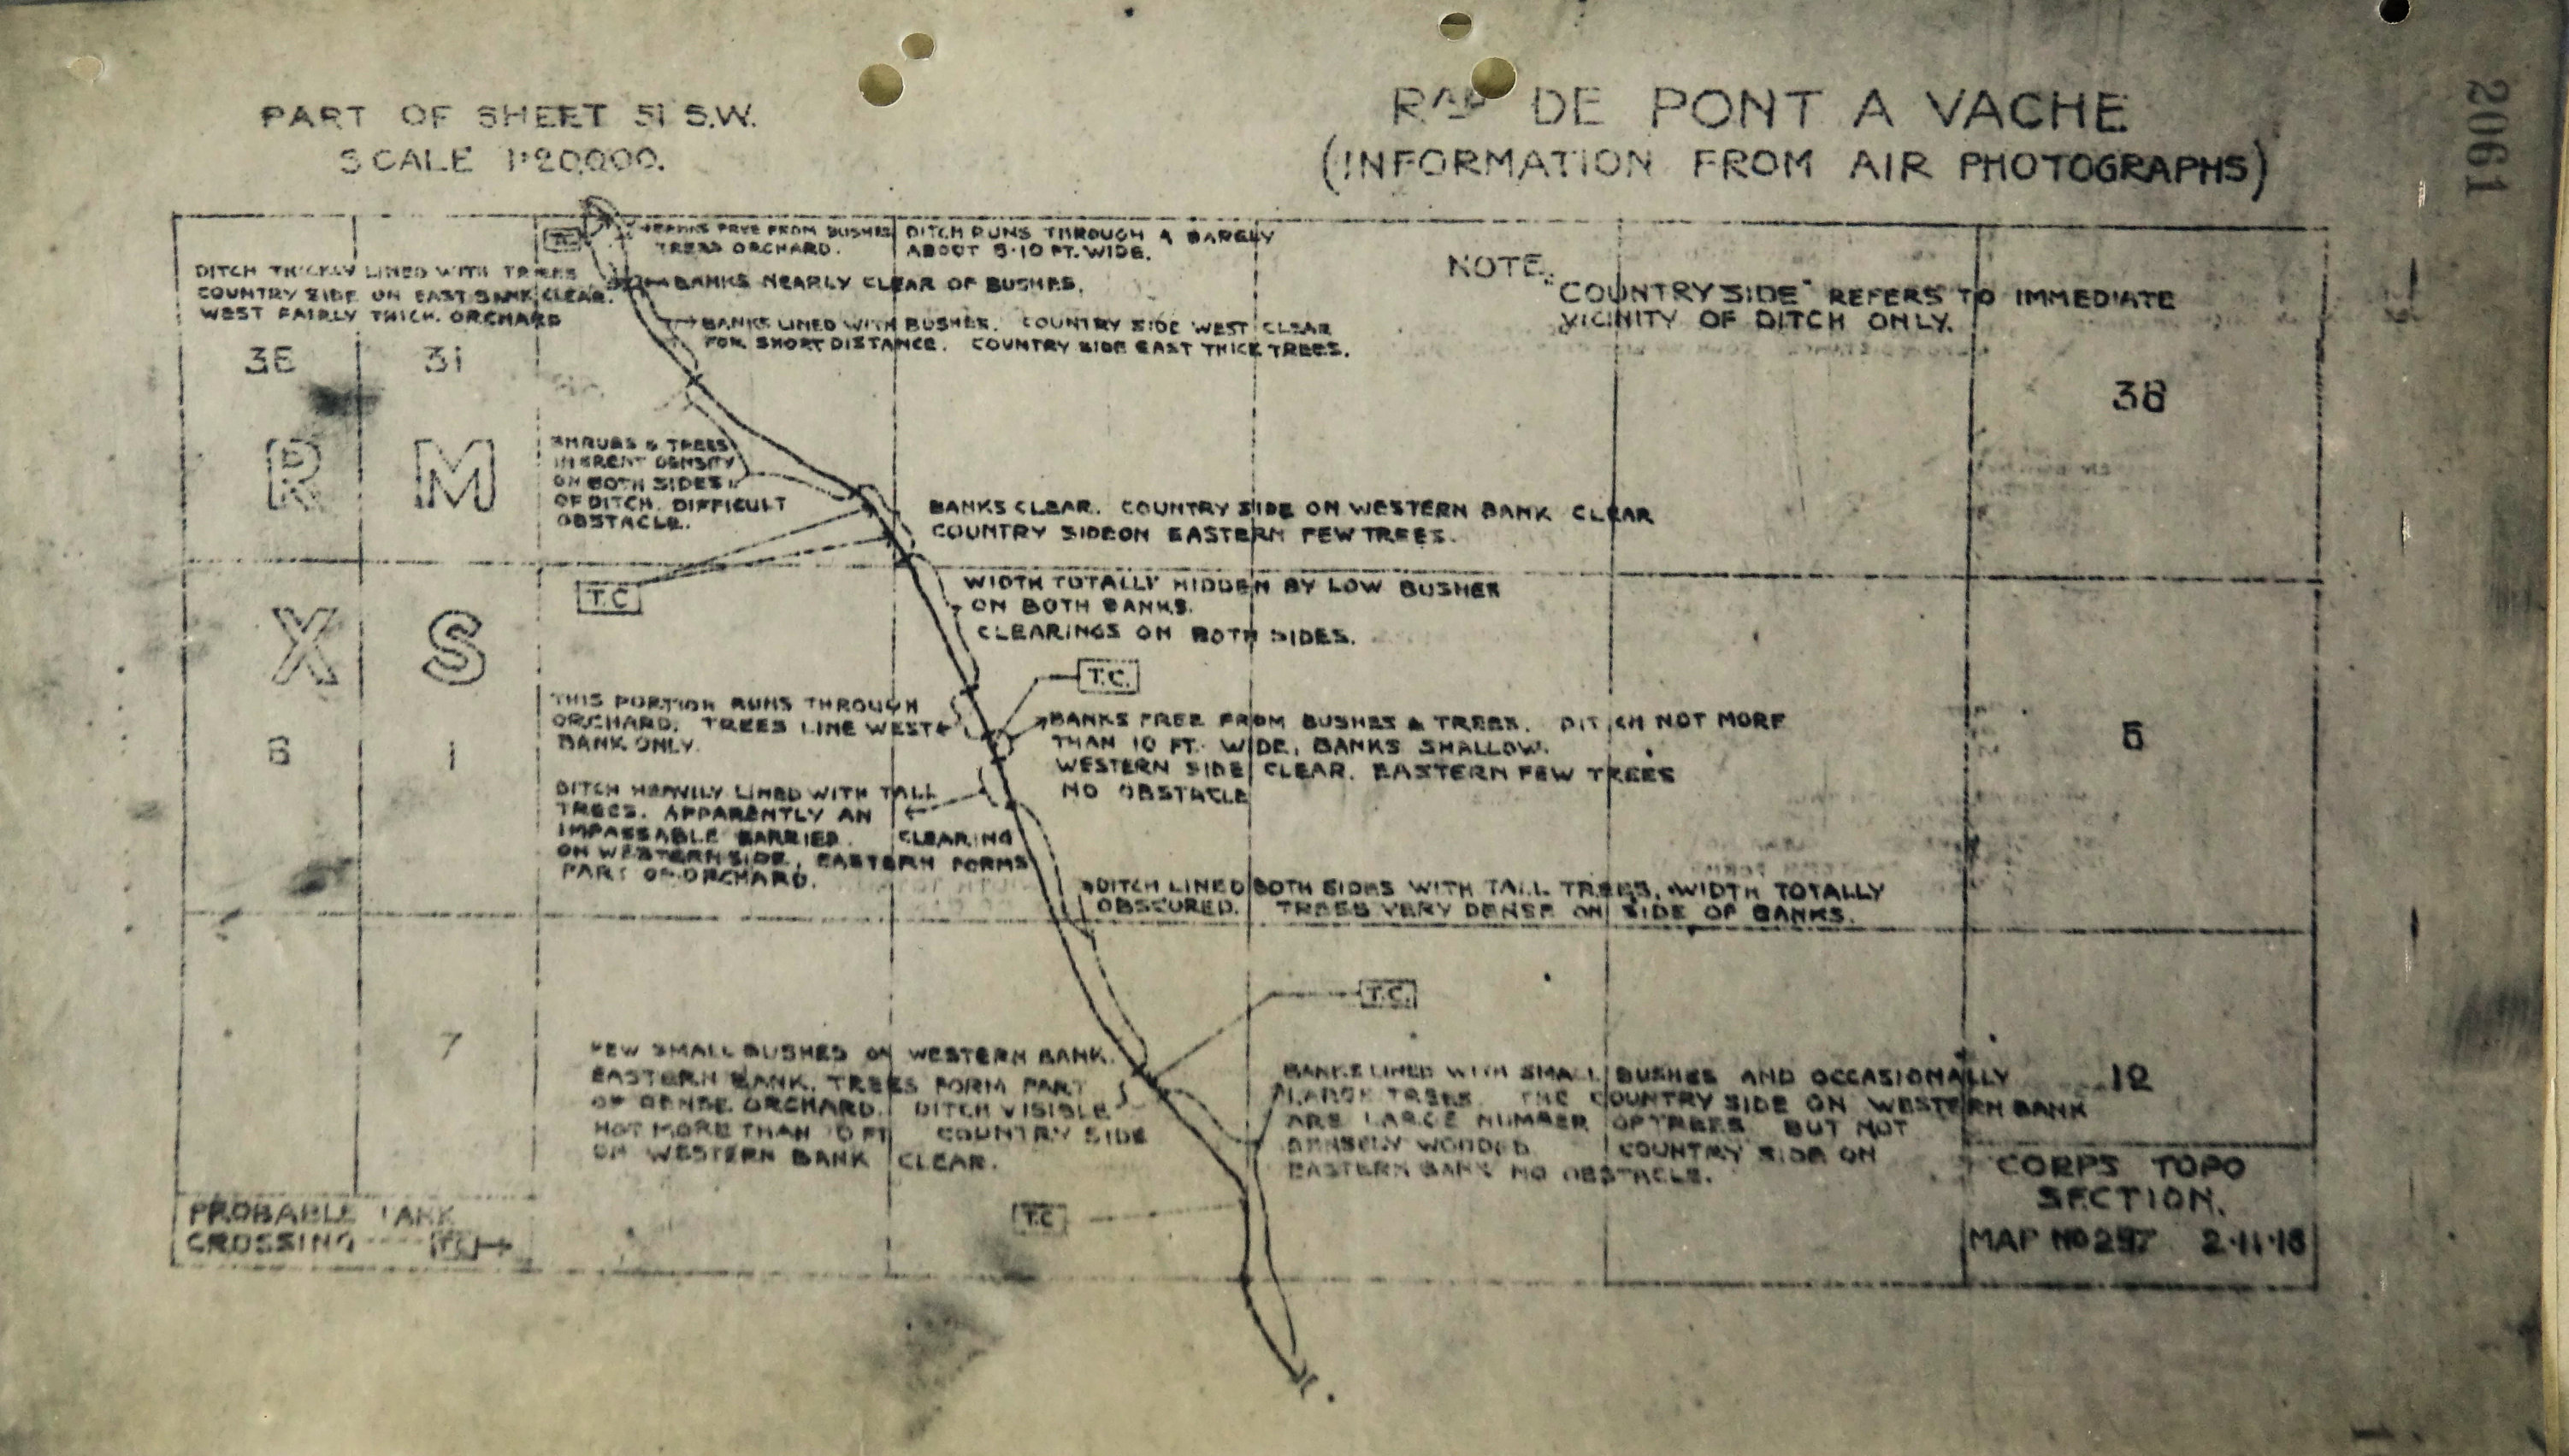 PART OF SHEET 51 S.W.
SCALE 1:20,000.
DE PONT A VACHE
(INFORMATION FROM AIR PHOTOGRAPHS)
2061
T.C.
BANKS FREE FROM BUSHES
TREES ORCHARD.
DITCH RUNS THROUGH A
ABOUT 8-10 FT. WIDE.
DITCH THICKLY LINED WITH TREES
COUNTRY SIDE ON EAST BANK CLEAR.
WEST FAIRLY THICK. ORCHARD
BANKS NEARLY CLEAR OF BUSHES.
BANKS LINED WITH BUSHES. COUNTRY SIDE WEST CLEAR
FOR SHORT DISTANCE. COUNTRY SIDE EAST THICK TREES.
NOTE.
"COUNTRY SIDE" REFERS TO IMMEDIATE
VICINITY OF DITCH ONLY.
36
31
36
R
M
SHRUBS & TREES
IN GREAT DENSITY
ON BOTH SIDES
OF DITCH. DIFFICULT
OBSTACLE.
BANKS CLEAR. COUNTRY SIDE ON WESTERN BANK CLEAR
COUNTRY SIDE ON EASTERN FEW TREES.
T.C
WIDTH TOTALLY HIDDEN BY LOW BUSHES
ON BOTH BANKS.
CLEARINGS ON BOTH SIDES.
X
S
T.C.
THIS PORTION RUNS THROUGH
ORCHARD. TREES LINE WEST
BANK ONLY.
BANKS FREE FROM BUSHES & TREES. DITCH NOT MORE
THAN 10 FT. WIDE, BANKS SHALLOW.
WESTERN SIDE CLEAR. EASTERN FEW TREES
NO OBSTACLE
6
1
6
DITCH HEAVILY LINED WITH TALL
TREES. APPARENTLY AN
IMPASSABLE BARRIER. CLEARING
ON WESTERN SIDE, EASTERN FORMS
PART OF ORCHARD.
DITCH LINED BOTH SIDES WITH TALL TREES. WIDTH TOTALLY
OBSCURED. TREES VERY DENSE ON SIDE OF BANKS.
T.C.
7
12
FEW SMALL BUSHES ON WESTERN BANK.
EASTERN BANK, TREES FORM PART
OF DENSE ORCHARD. DITCH VISIBLE
NOT MORE THAN 10 FT COUNTRY SIDE
ON WESTERN BANK CLEAR.
BANKS LINED WITH SMALL BUSHES AND OCCASIONALLY
LARGE TREES. THE COUNTRY SIDE ON WESTERN BANK
ARE LARGE NUMBER OF TREES BUT NOT
DENSELY WOODED. COUNTRY SIDE ON
EASTERN BANK NO OBSTACLE.
T.C
PROBABLE TANK
CROSSING T.C
CORPS TOPO
SECTION.
MAP NO 297 2·11·18